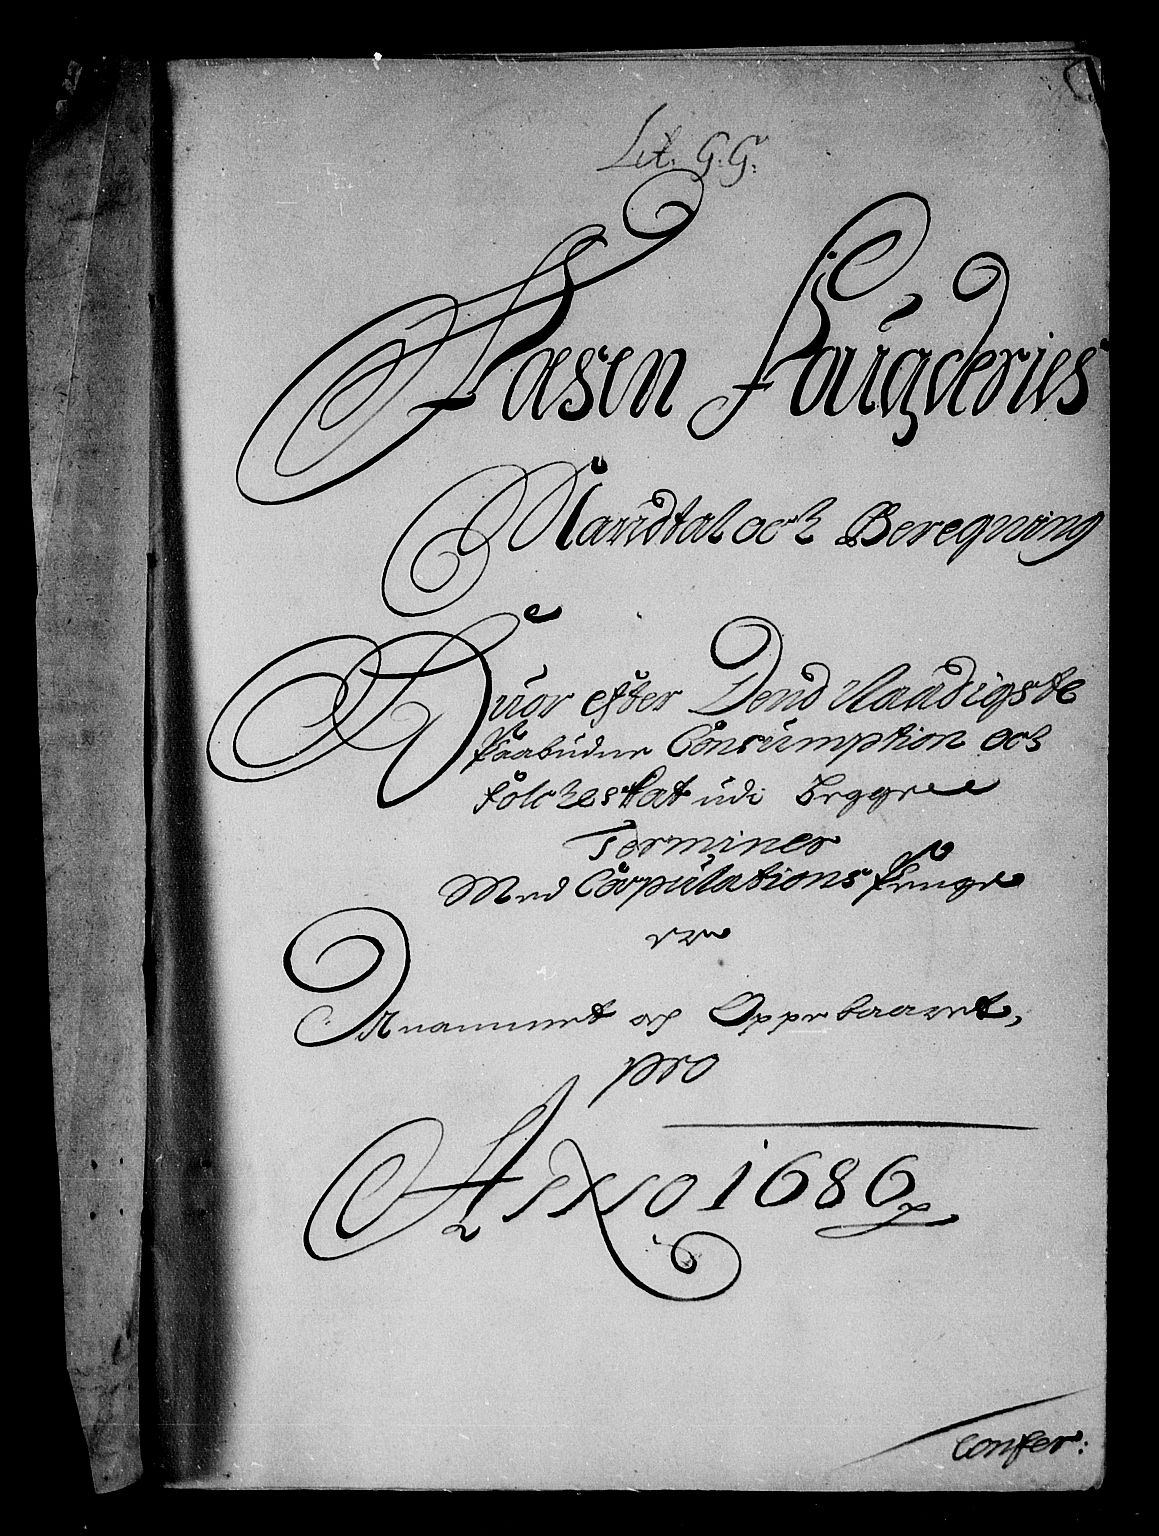 Lit. G.G:
Fosen Fougderies
Mandtal och Beregning
Huor efter Dend Naadigste
Paabudne Consumption och
Folckeskat udi begge
Terminer
Med Copulations Penge
er
Annammet og Oppebaaret,
pro
Anno 1686
Confer: